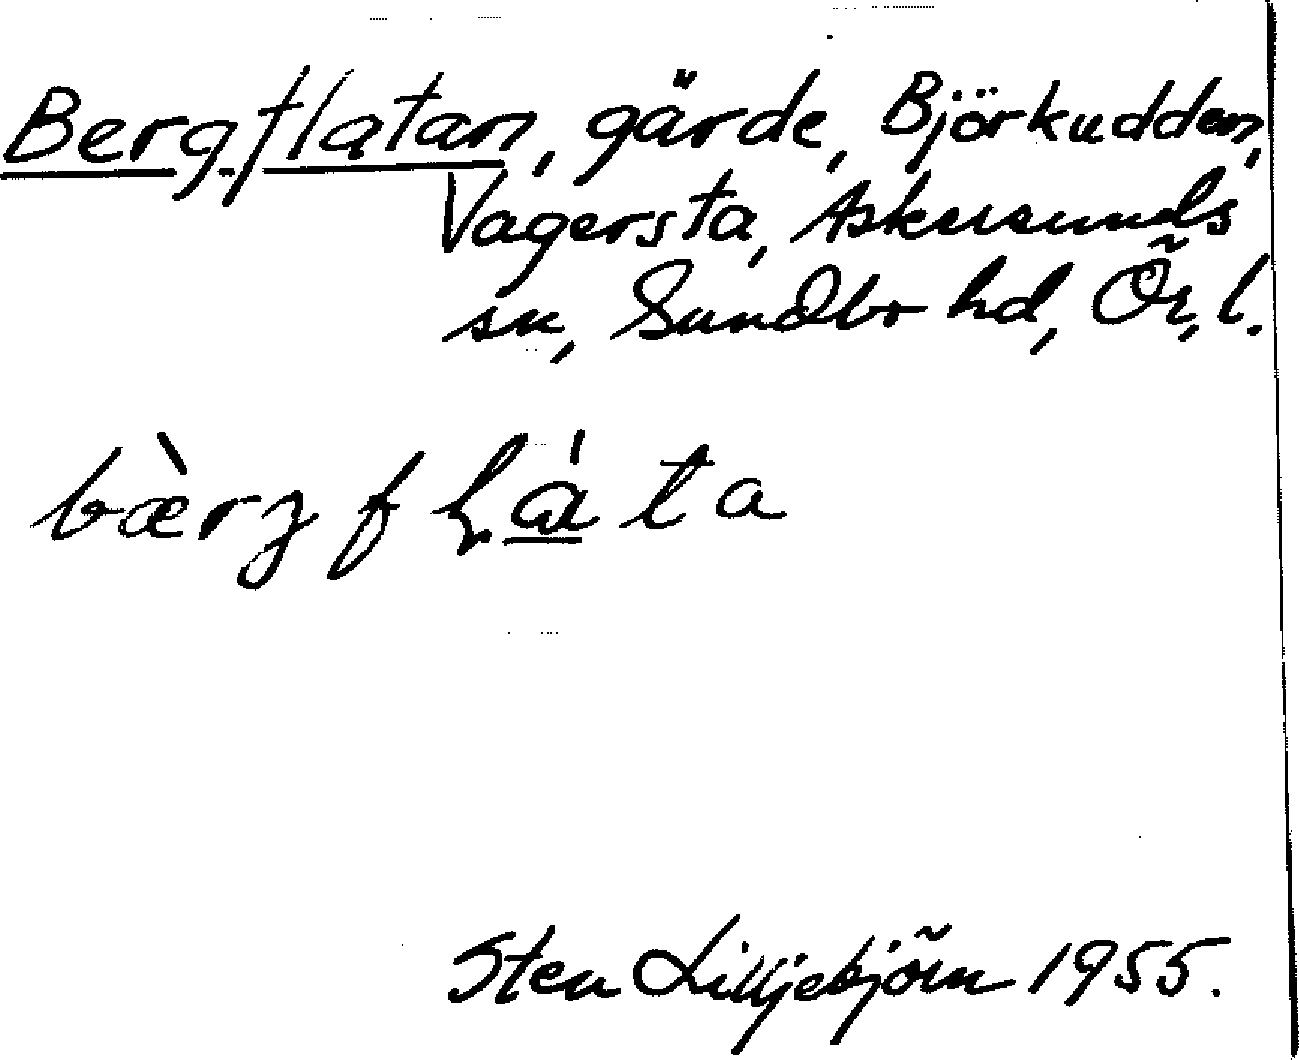 Bergflatan, gärde, Björkudden,
Vagersta, Askersunds
sn, Sundbo hd, Ör. l.
bæ̀rgfⱢa̱̍ta
Sten Lilljebjörn 1955.